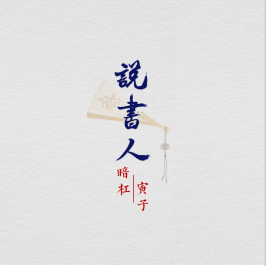 說書人
暗杠
寅子